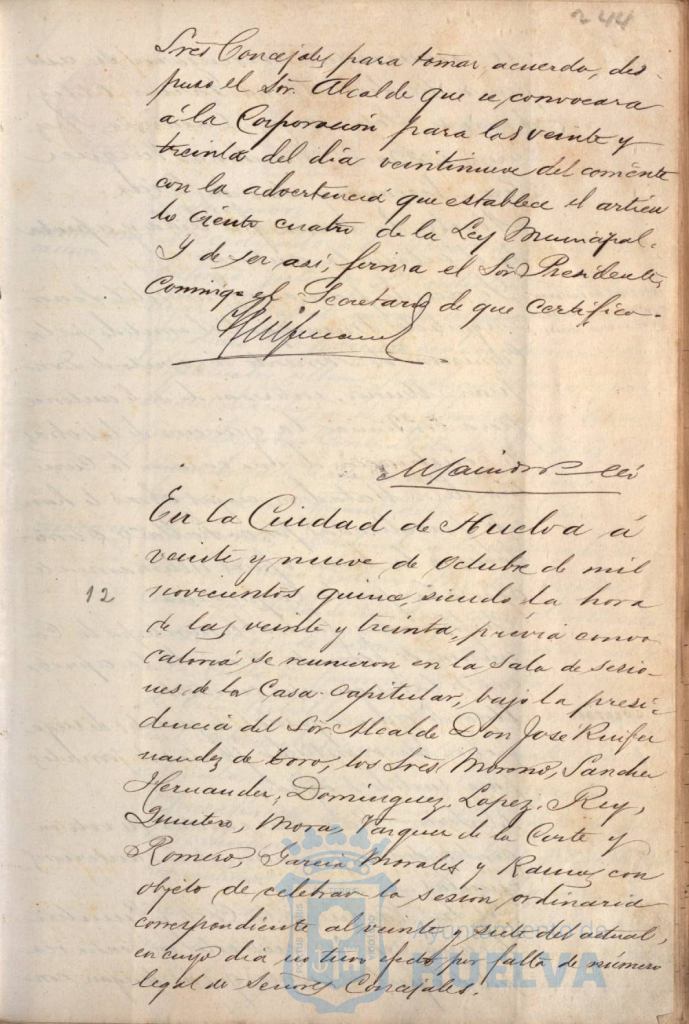 244
Sres Concejales para tomar acuerdo, dis
puso el Sor. Alcalde que se convocara
á la Corporación para las veinte y
treinta del dia veintinueve del corriente
con la advertencia que establece el articu
lo ciento cuatro de la Ley Municipal.
Y de ser asi, firma el Sor Presidente,
conmigo el Secretario de que certifico.
En la Ciudad de Huelva á
veinte y nueve de Octubre de mil
12
novecientos quince, siendo la hora
de las veinte y treinta, prévia convo
catoria se reunieron en la Sala de sesio-
nes de la Casa Capitular, bajo la presi-
dencia del Sor Alcalde Don José Ruifer
nandez de Toro, los Sres Moreno, Sanchez
Hernandez, Dominguez, Lopez, Rey,
Quintero, Mora, Vazquez de la Corte y
Romero, Garcia Morales y Ramos con
objeto de celebrar la sesion ordinaria
correspondiente al veinte y siete del actual,
en cuyo dia no tuvo efecto por falta de número
legal de Señores Concejales.
Ayuntamiento de
HUELVA